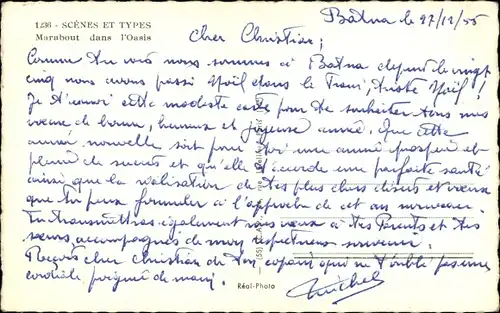 1236 - SCÈNES ET TYPES
Marabout dans l'Oasis
Batna le 27/12/55
Cher Christian,
Comme tu vois nous sommes à Batna depuis le vingt
cinq nous avons passé Noël dans le Train, triste Noël !
Je t'envoi cette modeste carte pour te souhaiter tous mes
vœux de bonne, heureuse et joyeuse année. Que cette
année nouvelle soit pour toi une année prospère et
pleine de succès et qu'elle t'accorde une parfaite santé
ainsi que la réalisation de tes plus chers désirs et vœux
que tu peux formuler à l'approche de cet an nouveau.
Tu transmettras également mes vœux à tes Parents et tes
sœurs, accompagnés de mon respectueux souvenir.
Reçois cher Christian de ton copain qui ne t'oublie pas une
cordiale poignée de main.
Michel
Réal-Photo